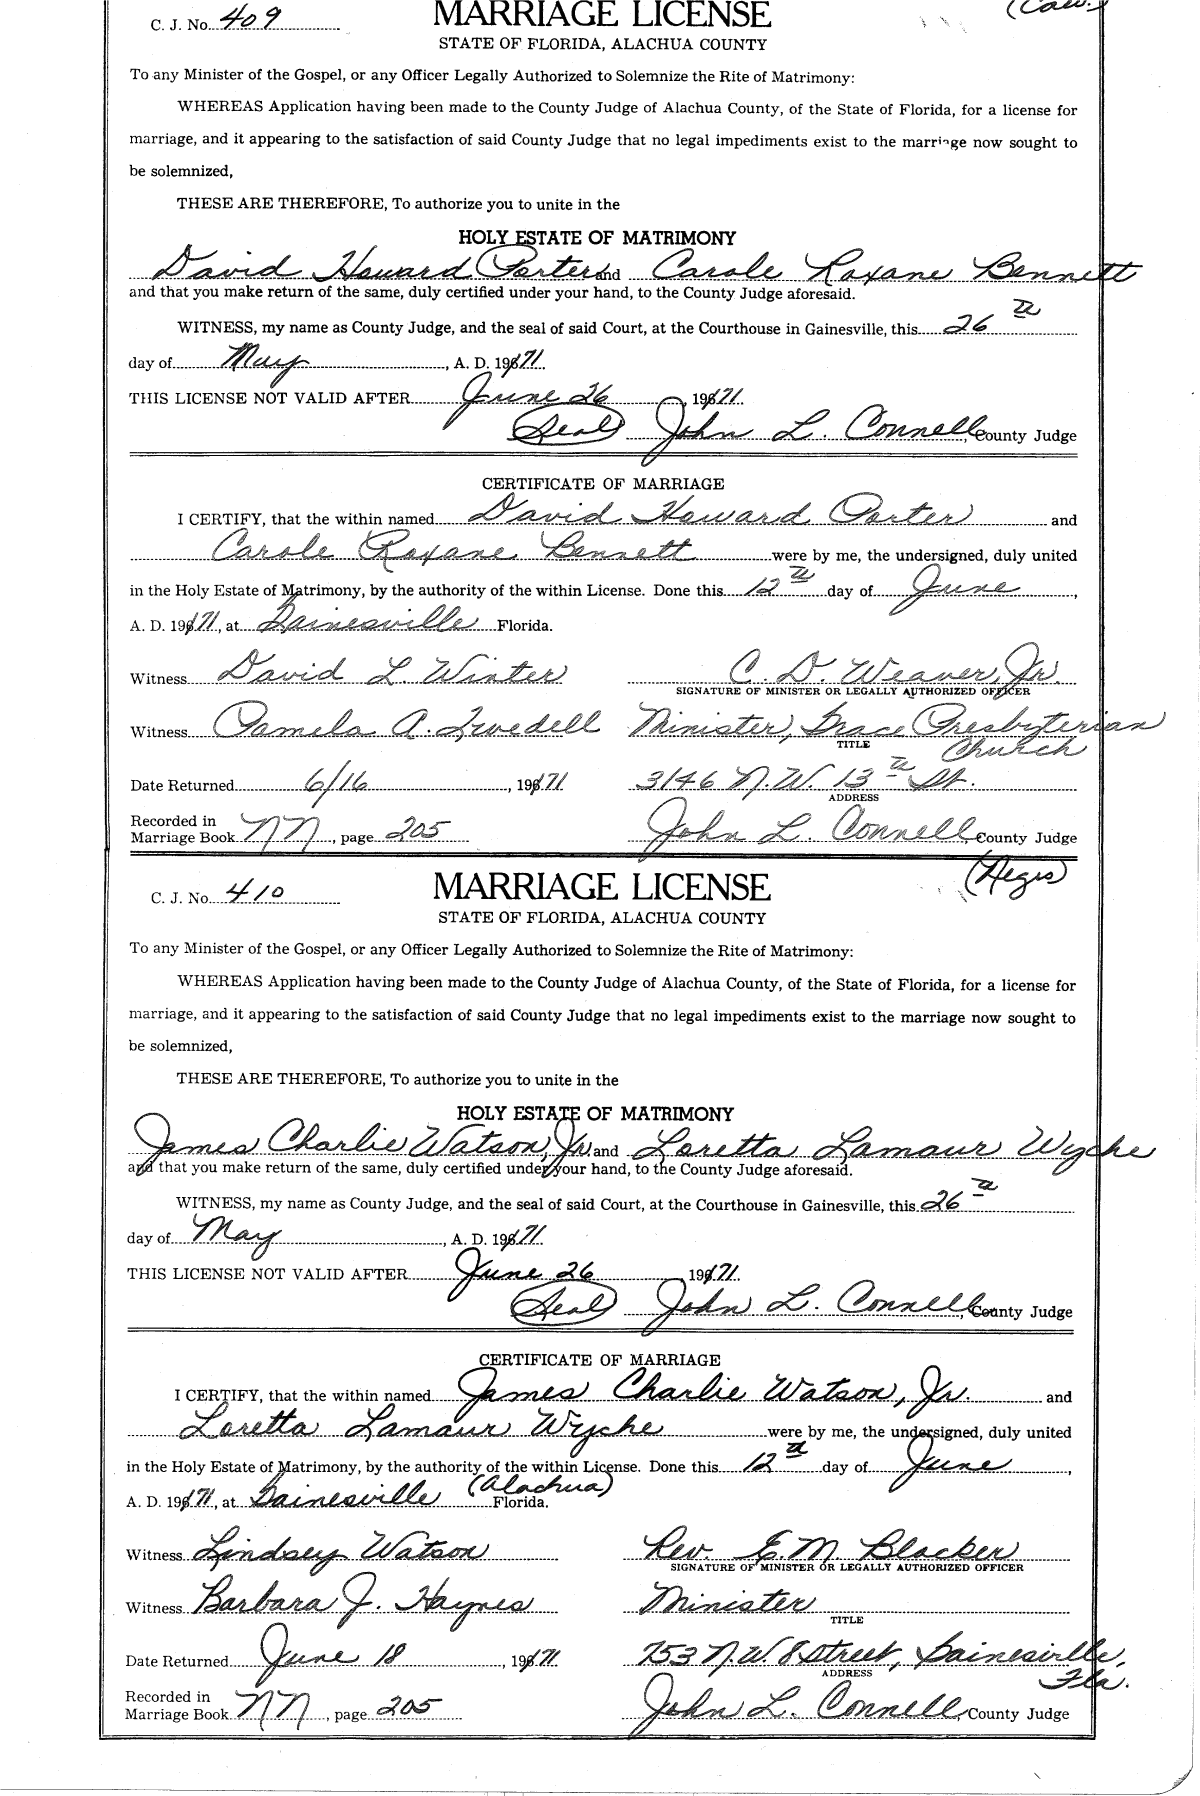 (Cau.)
C. J. No. 409
MARRIAGE LICENSE
STATE OF FLORIDA, ALACHUA COUNTY
To any Minister of the Gospel, or any Officer Legally Authorized to Solemnize the Rite of Matrimony:
WHEREAS Application having been made to the County Judge of Alachua County, of the State of Florida, for a license for
marriage, and it appearing to the satisfaction of said County Judge that no legal impediments exist to the marriage now sought to
be solemnized,
THESE ARE THEREFORE, To authorize you to unite in the
HOLY ESTATE OF MATRIMONY
David Howard Porter and Carole Roxane Bennett
and that you make return of the same, duly certified under your hand, to the County Judge aforesaid.
WITNESS, my name as County Judge, and the seal of said Court, at the Courthouse in Gainesville, this 26th
day of May, A. D. 1971.
THIS LICENSE NOT VALID AFTER June 26, 1971.
(Seal) John L. Connell, County Judge
CERTIFICATE OF MARRIAGE
I CERTIFY, that the within named David Howard Porter and
Carole Roxane Bennett were by me, the undersigned, duly united
in the Holy Estate of Matrimony, by the authority of the within License. Done this 12th day of June,
A. D. 1971, at Gainesville Florida.
Witness David L Winter C. D. Weaver, Jr.
SIGNATURE OF MINISTER OR LEGALLY AUTHORIZED OFFICER
Witness Pamela A. Minister, Grace Presbyterian
TITLE Church
Date Returned 6/16, 1971 3146 N.W. 13th St.
ADDRESS
Recorded in
Marriage Book NN, page 205 John L. Connell, County Judge
(Negro)
C. J. No. 410
MARRIAGE LICENSE
STATE OF FLORIDA, ALACHUA COUNTY
To any Minister of the Gospel, or any Officer Legally Authorized to Solemnize the Rite of Matrimony:
WHEREAS Application having been made to the County Judge of Alachua County, of the State of Florida, for a license for
marriage, and it appearing to the satisfaction of said County Judge that no legal impediments exist to the marriage now sought to
be solemnized,
THESE ARE THEREFORE, To authorize you to unite in the
HOLY ESTATE OF MATRIMONY
James Charlie Watson, Jr. and Loretta Lamaur Wyche
and that you make return of the same, duly certified under your hand, to the County Judge aforesaid.
WITNESS, my name as County Judge, and the seal of said Court, at the Courthouse in Gainesville, this 26th
day of May, A. D. 1971.
THIS LICENSE NOT VALID AFTER June 26 1971.
(Seal) John L. Connell, County Judge
CERTIFICATE OF MARRIAGE
I CERTIFY, that the within named James Charlie Watson, Jr. and
Loretta Lamaur Wyche were by me, the undersigned, duly united
in the Holy Estate of Matrimony, by the authority of the within License. Done this 12th day of June,
A. D. 1971, at Gainesville (Alachua) Florida.
Witness Lindsey Watson Rev. E. M. Blocker
SIGNATURE OF MINISTER OR LEGALLY AUTHORIZED OFFICER
Witness Barbara J. Haynes Minister
TITLE
Date Returned June 18, 1971 753 N.W. 8 Street, Gainesville,
ADDRESS Fla.
Recorded in
Marriage Book NN, page 205 John L. Connell, County Judge